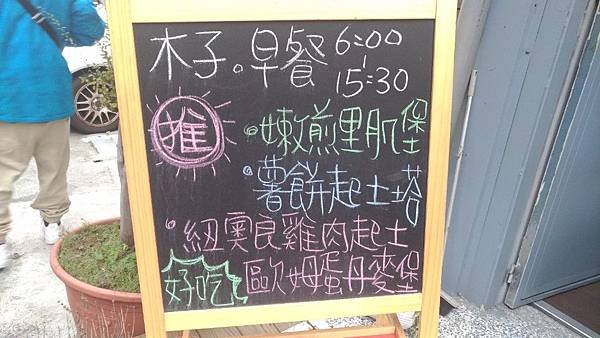 木子。早餐 6:00
|
15:30
推
•嫩煎里肌堡
•薯餅起士塔
•紐奧良雞肉起士
好吃 歐姆蛋丹麥堡